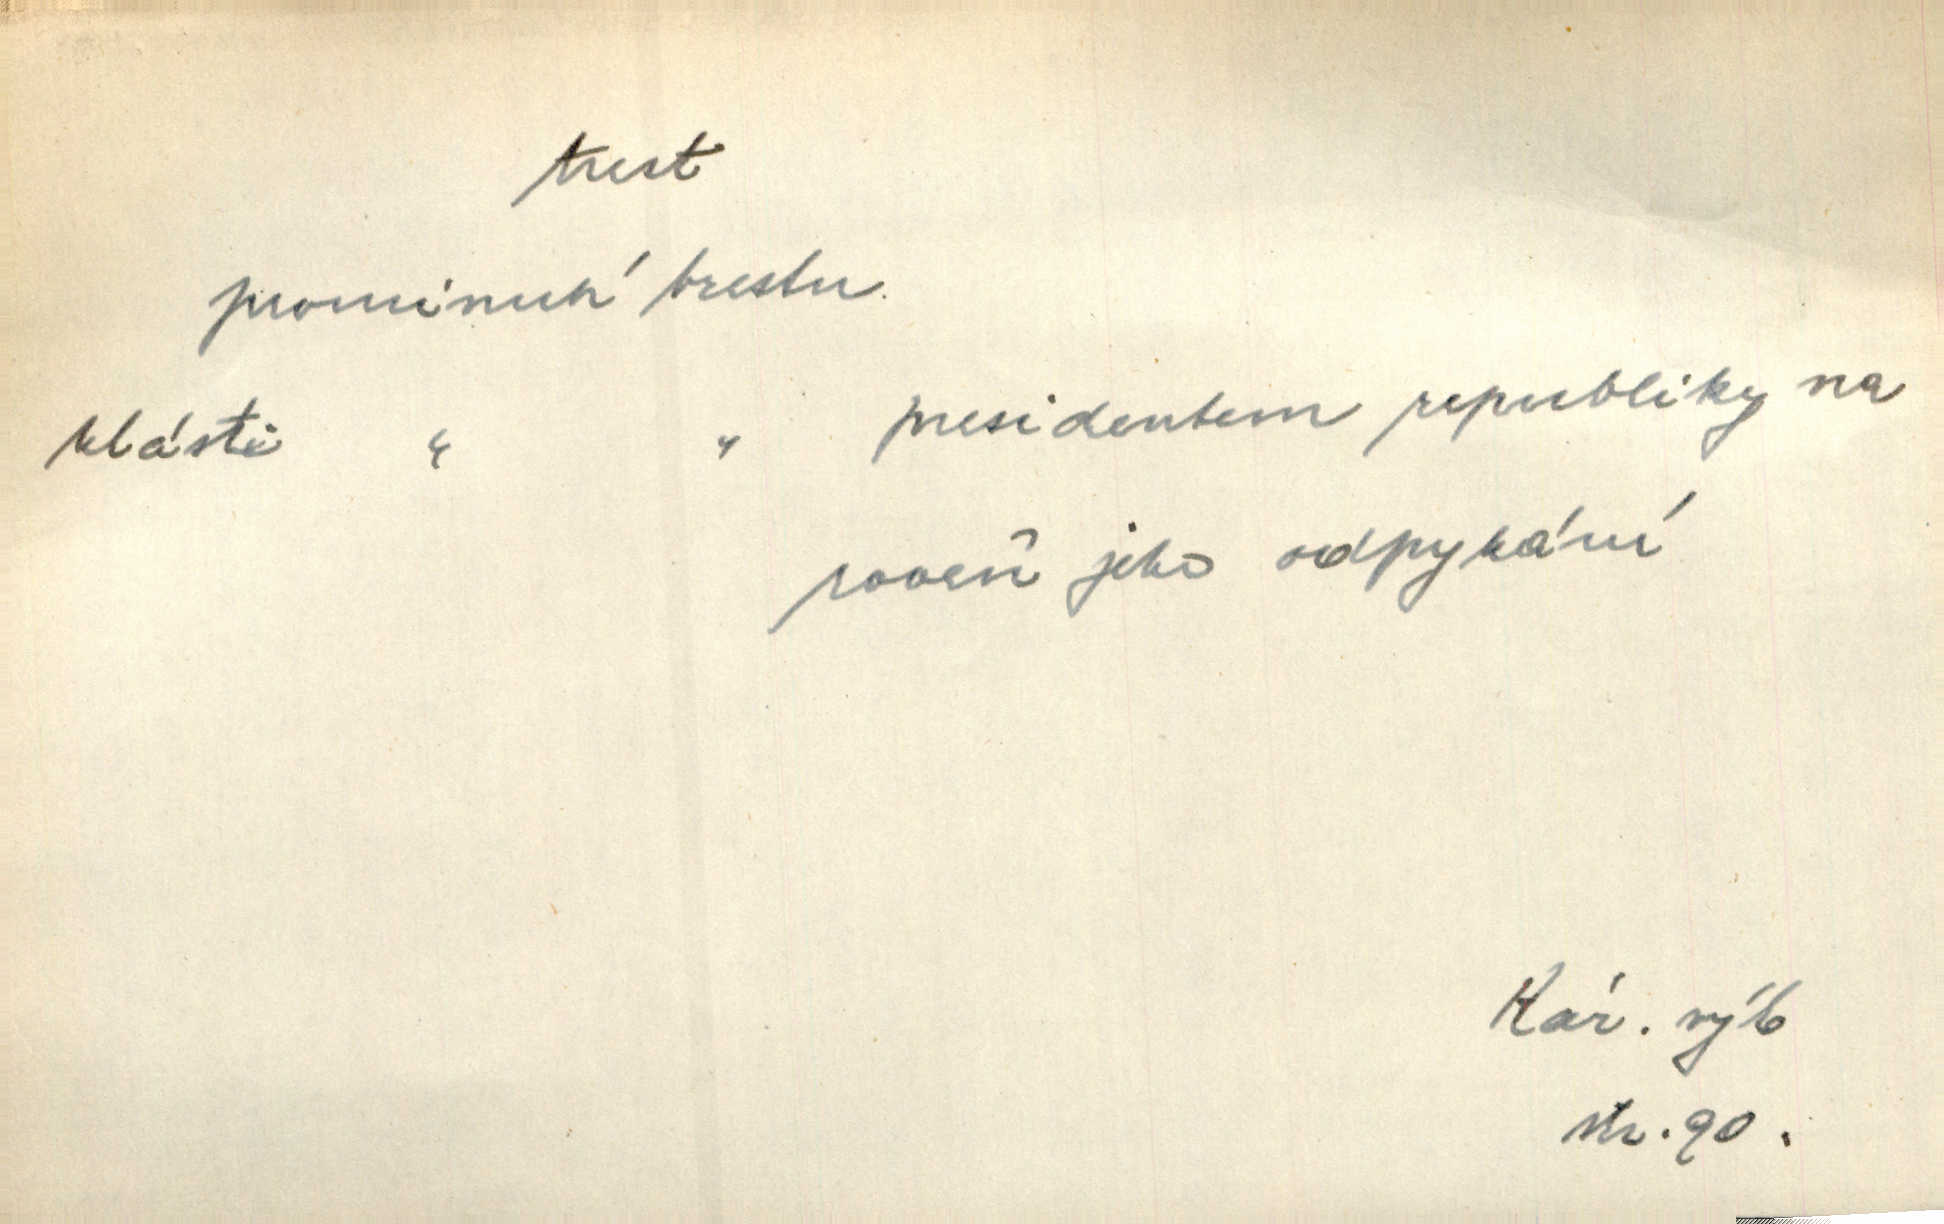 trest
prominutí trestu.
kláště " " presidentem republiky na
roveň jeho odpykání
Kár. výb
str. 90.